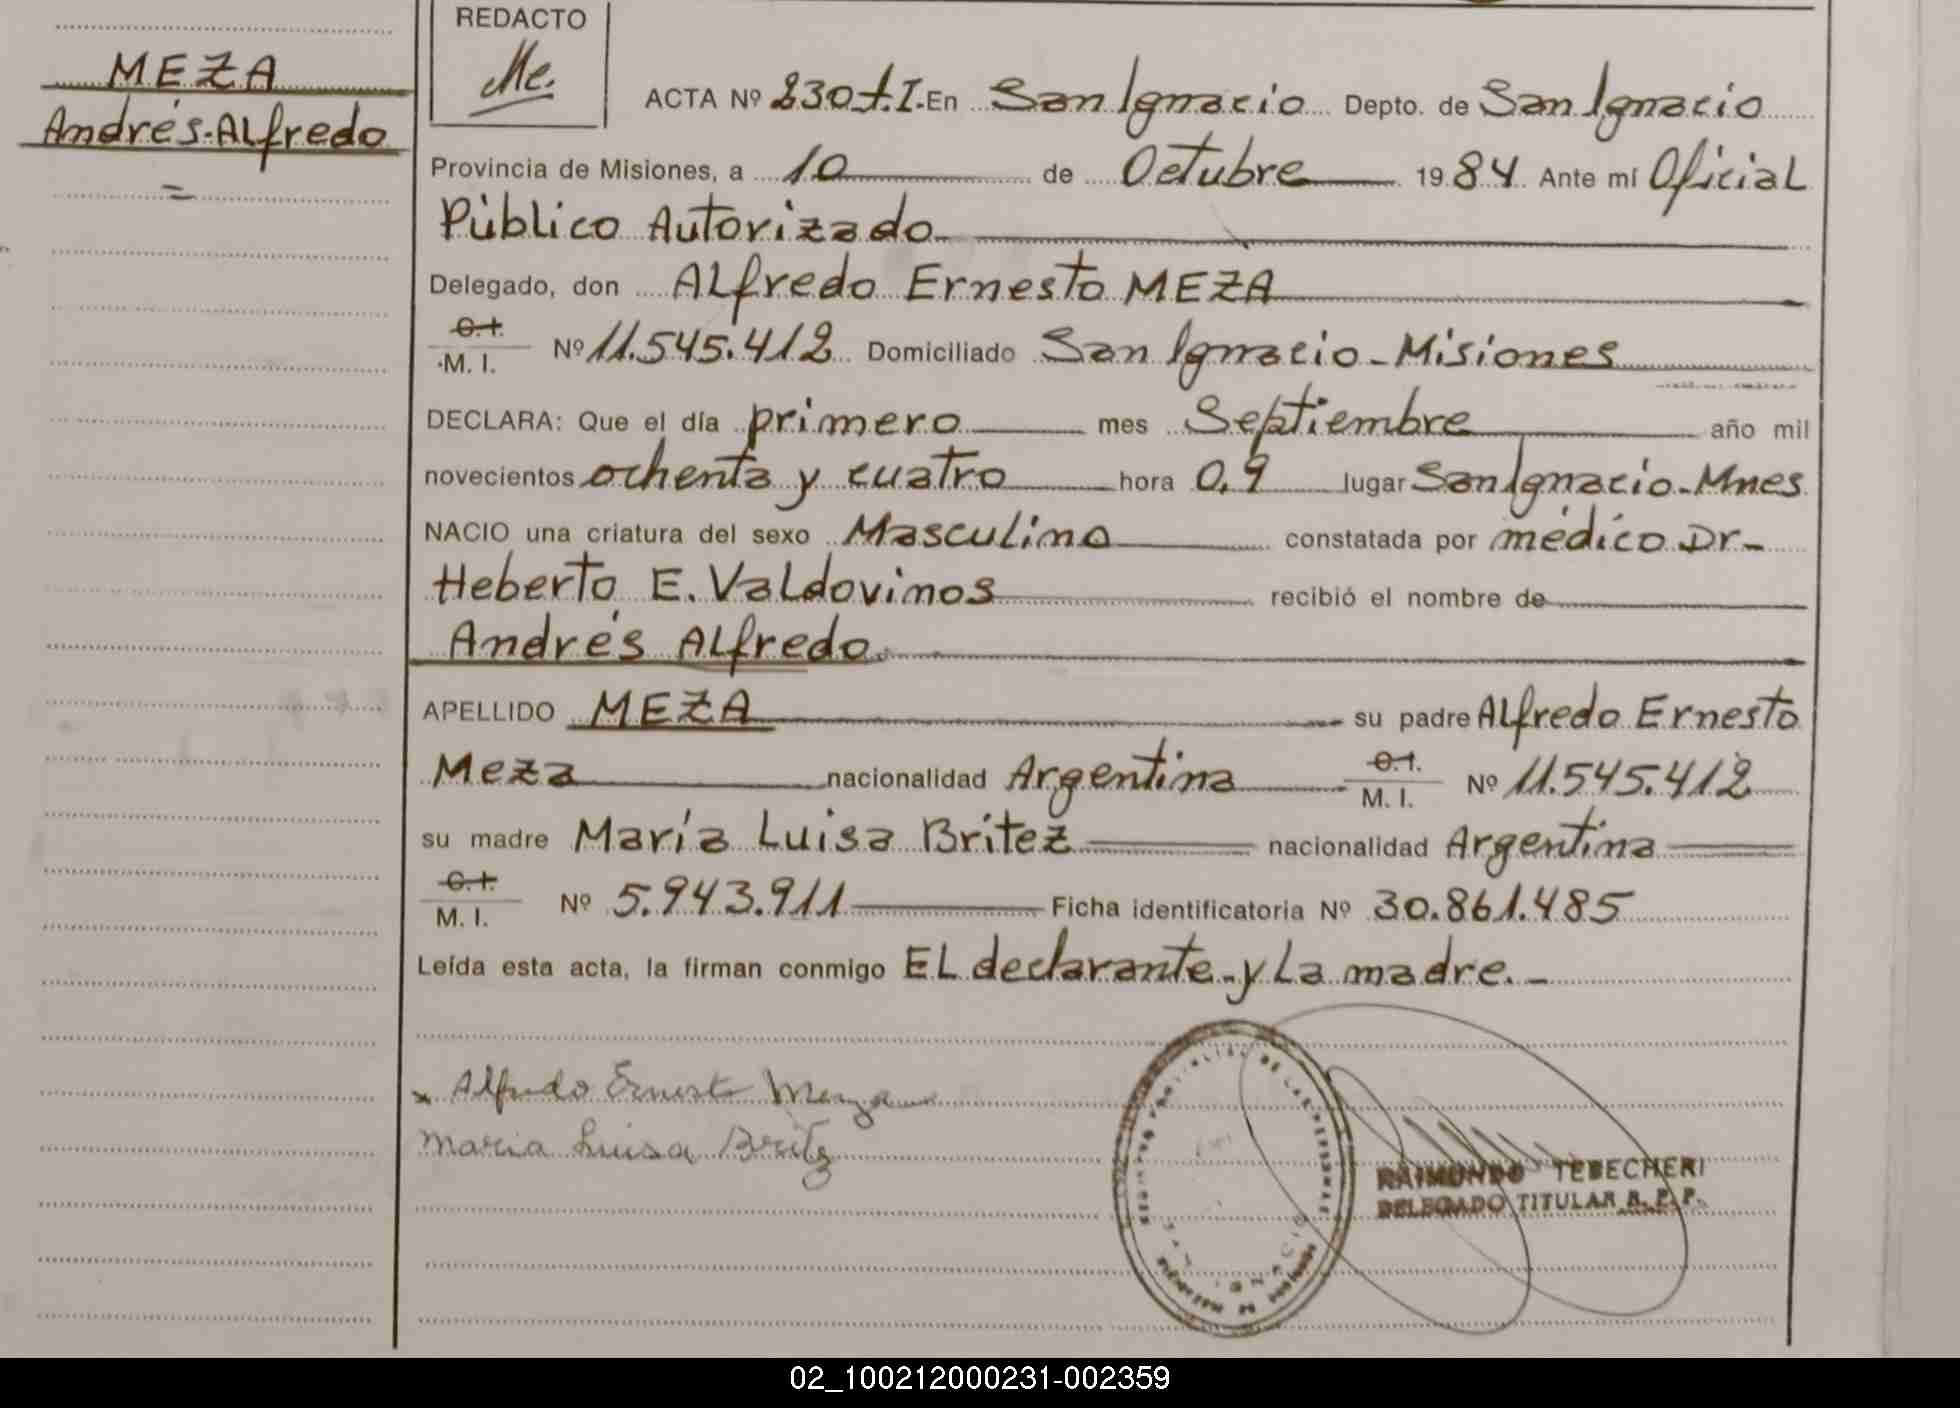 MEZA
Andrés-Alfredo
REDACTO
Me.
ACTA Nº 230 t.I. En San Ignacio Depto. de San Ignacio
Provincia de Misiones, a 10 de Octubre 1984 Ante mí Oficial
Público Autorizado
Delegado, don Alfredo Ernesto MEZA
C.I.
M. I. Nº 11.545.412 Domiciliado San Ignacio - Misiones
DECLARA: Que el día primero mes Septiembre año mil
novecientos ochenta y cuatro hora 0,9 lugar San Ignacio-Mnes
NACIO una criatura del sexo Masculino constatada por médico Dr-
Heberto E. Valdovinos recibió el nombre de
Andrés Alfredo
APELLIDO MEZA su padre Alfredo Ernesto
Meza nacionalidad Argentina C.I. M. I. Nº 11.545.412
su madre María Luisa Britez nacionalidad Argentina
C.I.
M. I. Nº 5.943.911 Ficha identificatoria Nº 30.861.485
Leída esta acta, la firman conmigo EL declarante-y La madre.-
x Alfredo Ernesto Meza
Maria Luisa Britez
RAIMUNDO TEBECHERI
DELEGADO TITULAR R. P. P.
02_100212000231-002359